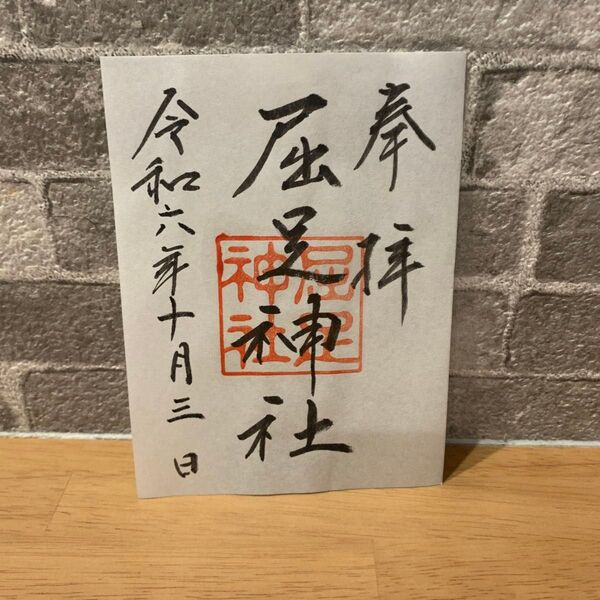 奉拝
屈足神社
屈足
神社
令和六年十月三日